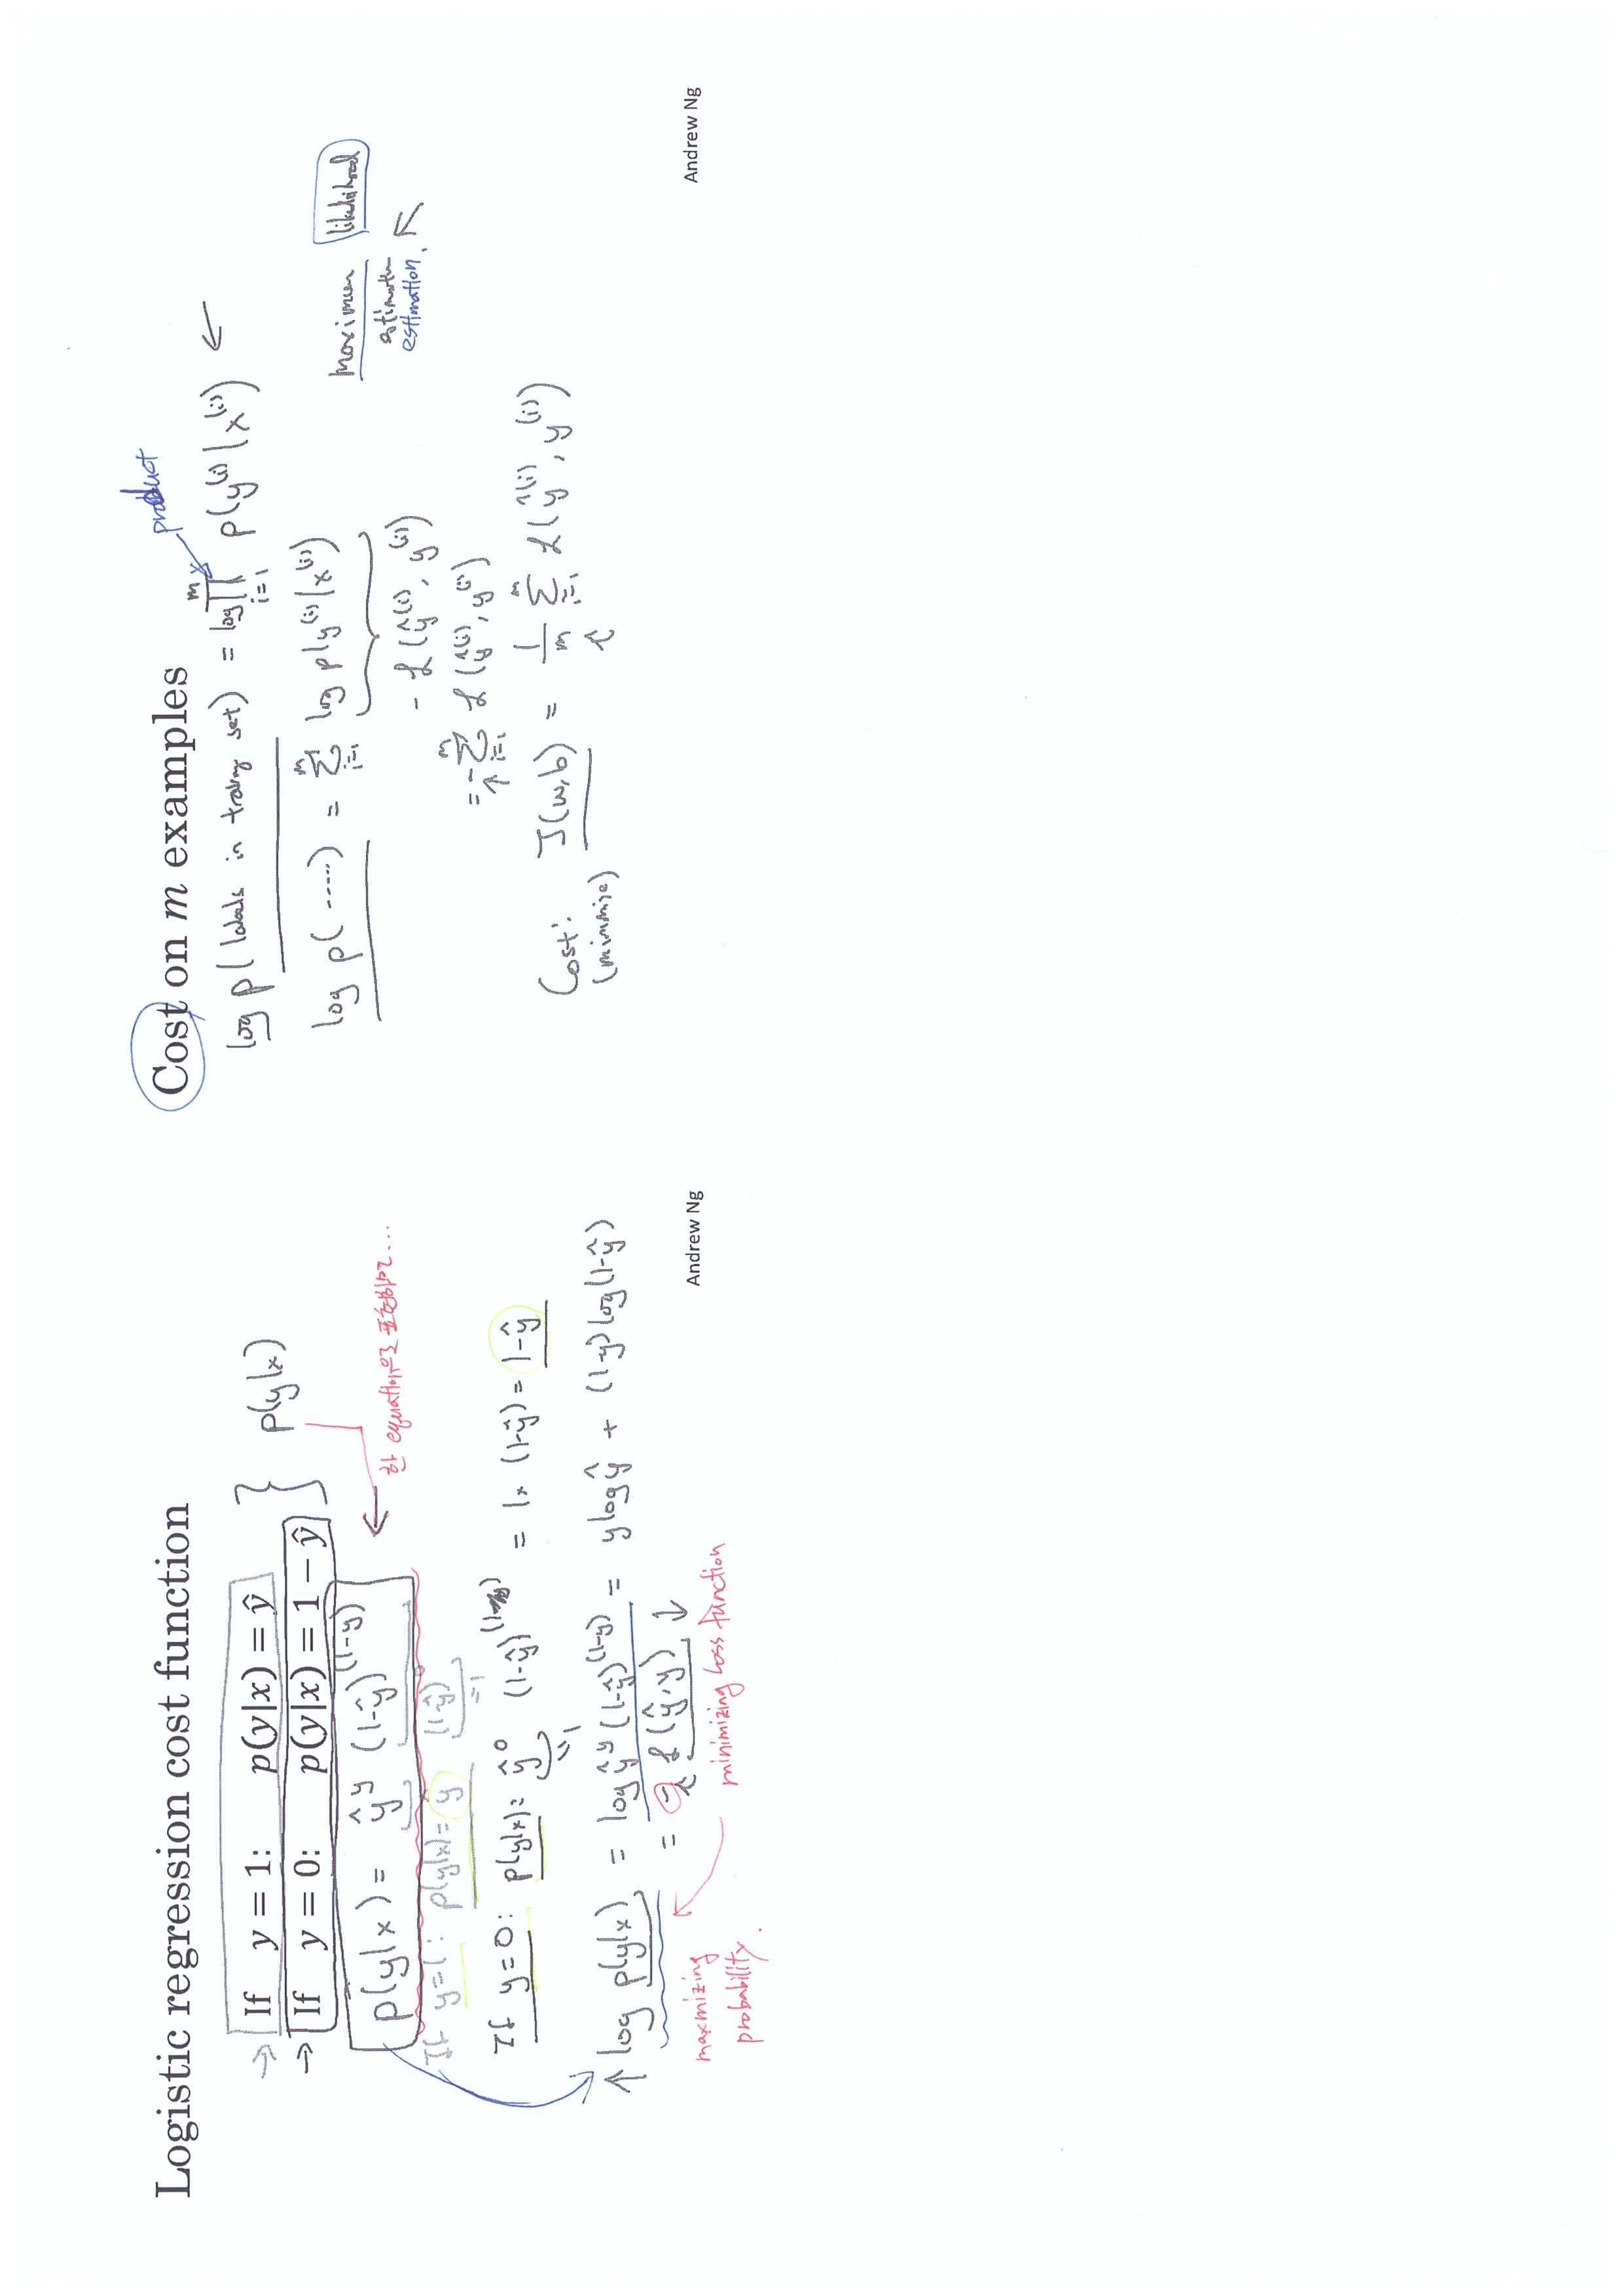 Logistic regression cost function
If y = 1: p(y|x) = ŷ
If y = 0: p(y|x) = 1 − ŷ
p(y|x)
p(y|x) = ŷ^y (1-ŷ)^(1-y)
한 equation으로 표현하면...
If y=1: p(y|x) = ŷ (1-ŷ)^0
=1
If y=0: p(y|x) = ŷ^0 (1-ŷ)^(1-y) = 1× (1-ŷ) = 1-ŷ
=1
↑ log p(y|x) = log ŷ^y (1-ŷ)^(1-y) = y log ŷ + (1-y) log(1-ŷ)
= - ℒ(ŷ,y) ↓
maxmizing
probability.
minimizing loss function
Andrew Ng
Cost on m examples
product
log p(labels in training set) = log ∏_{i=1}^{m} p(y^(i)|x^(i)) ←
log p(-----) = Σ_{i=1}^{m} log p(y^(i)|x^(i))
- ℒ(ŷ^(i), y^(i))
maximum likelihood
estimation
estimation.
= - Σ_{i=1}^{m} ℒ(ŷ^(i), y^(i))
Cost: J(w,b) = 1/m Σ_{i=1}^{m} ℒ(ŷ^(i), y^(i))
(minimize)
Andrew Ng